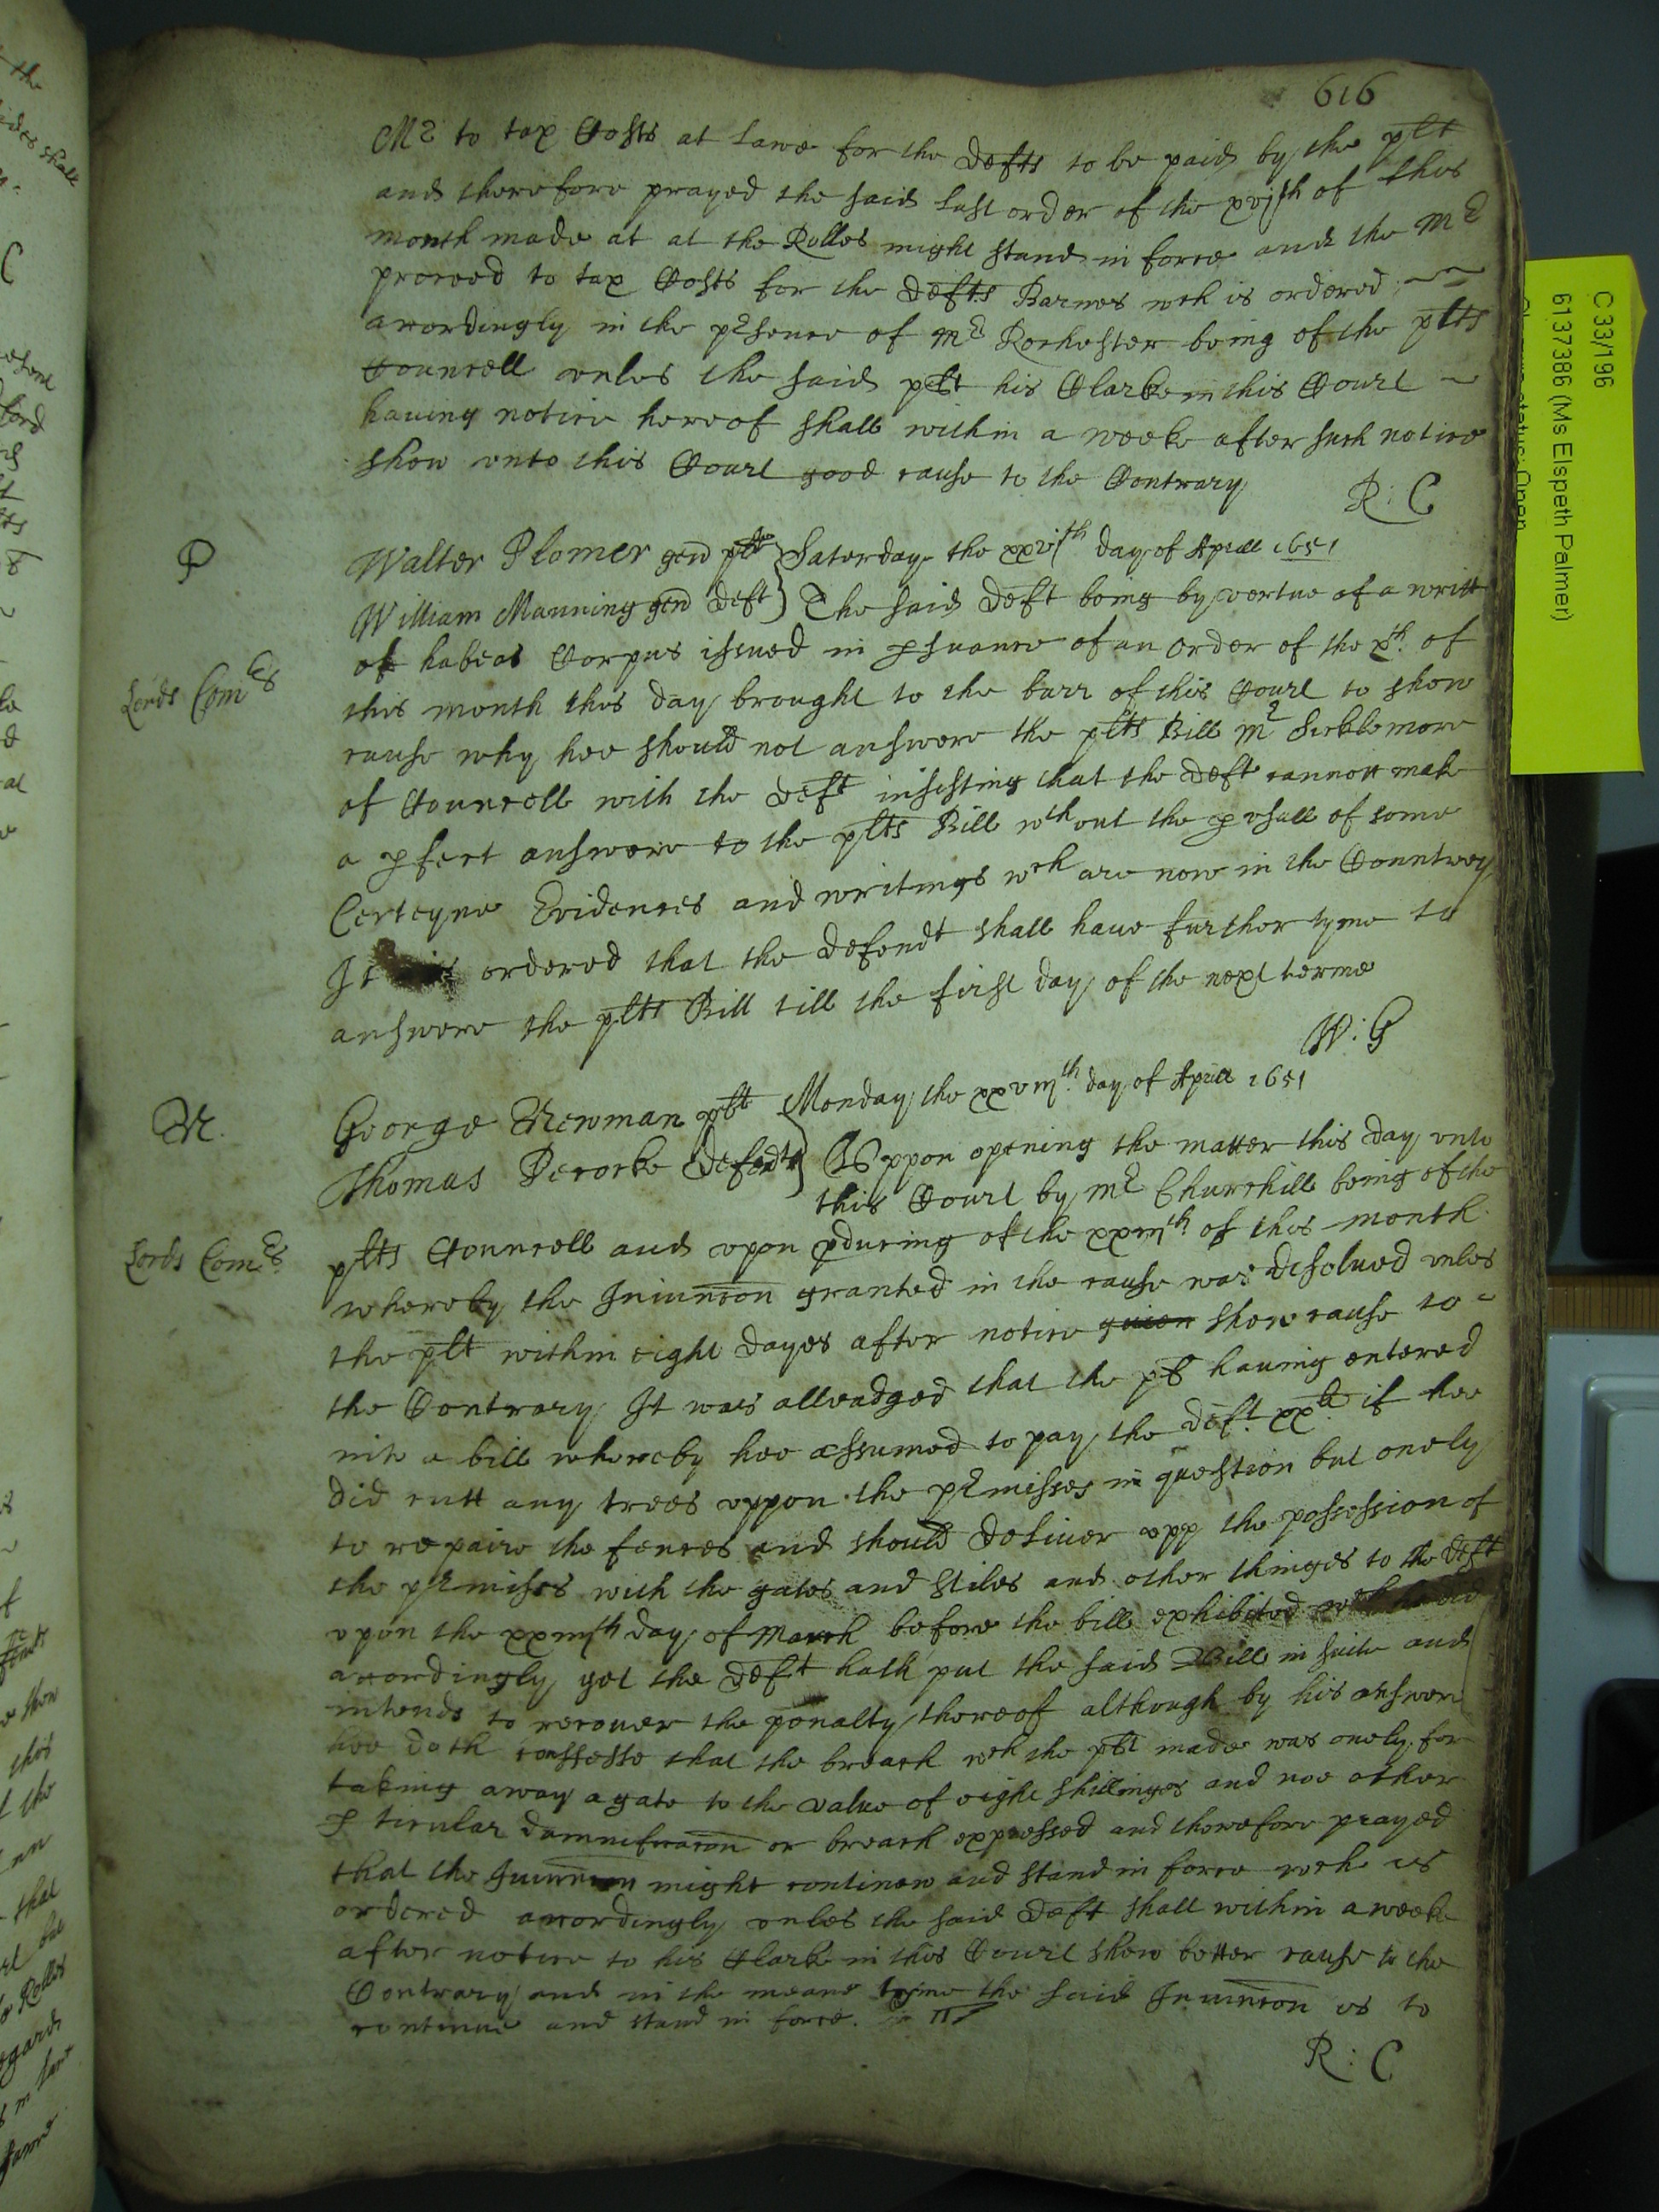 616
Mr to tax Costs at lawe for the defts to be paid by the plt
and therefore prayed the said last order of the xvjth of this
month made at at the Rolles might stand in force and the Mr
proceed to tax Costs for the defts Barnes wch is ordered
accordingly in the prsence of Mr Rochester being of the plts
Councell vnles the said plt his Clarke in this Court
haueing notice hereof shall within a weeke after such notice
show vnto this Court good cause to the Contrary
R: C
P
Walter Plomer gen plt Saterday the xxvjth day of Aprill 1651
William Manning gen deft The said deft being by vertue of a writt
Lords Comrs
of habeas Corpus issued in psuance of an order of the xth of
this month this day brought to the barr of this Court to show
cause why hee should not answere the plts Bill Mr Sicklemore
of Councell with the deft insisting that the deft cannott make
a pfect answere to the plts Bill wthout the pusall of some
Certeyne Evidences and writings wch are now in the Countrey
It is ordered that the defendt shall haue further tyme to
answere the plts Bill till the first day of the next terme
W: G
N.
George Newman plt Monday the xxviijth day of Aprill 1651
Thomas Pecocke defendt Vppon opening the matter this day vnto
this Court by Mr Churchill being of the
Lords Comrs
plts Councell and vpon pducing of the xxiijth of this month
whereby the Iniuncon granted in the cause was disolued vnles
the plt within eight dayes after notice giuen show cause to
the Contrary It was alleadged that the plt hauing entered
into a bill whereby hee assumed to pay the deft xxli if hee
did cutt any trees vppon the prmisses in question but onely
to repaire the fences and should deliuer vpp the possession of
the prmisses with the gates and stiles and other thinges to the deft
vpon the xxiiijth day of March before the bill exhibited wch hee did
accordingly yet the deft hath put the said Bill in suite and
intends to recouer the penalty thereof although by his answere
hee doth confesse that the breach wch the plt made was onely for
takeing away a gate to the value of eight shillinges and noe other
pticular damnificacon or breach expressed and therefore prayed
that the Iniuncon might continew and stand in force wch is
ordered accordingly vnles the said deft shall within a weeke
after notice to his Clarke in this Court show better cause to the
Contrary and in the meane tyme the said Iniuncon is to
continue and stand in force.
R: C
C 33/196
6137386 (Ms Elspeth Palmer)